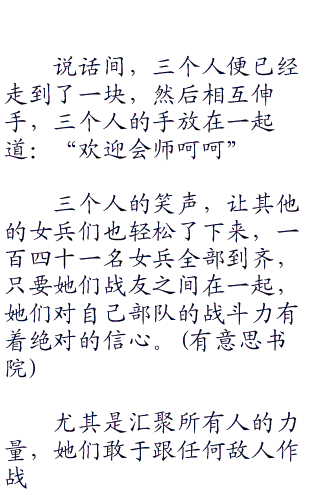 说话间，三个人便已经
走到了一块，然后相互伸
手，三个人的手放在一起
道：“欢迎会师呵呵”
三个人的笑声，让其他
的女兵们也轻松了下来，一
百四十一名女兵全部到齐，
只要她们战友之间在一起，
她们对自己部队的战斗力有
着绝对的信心。(有意思书
院)
尤其是汇聚所有人的力
量，她们敢于跟任何敌人作
战